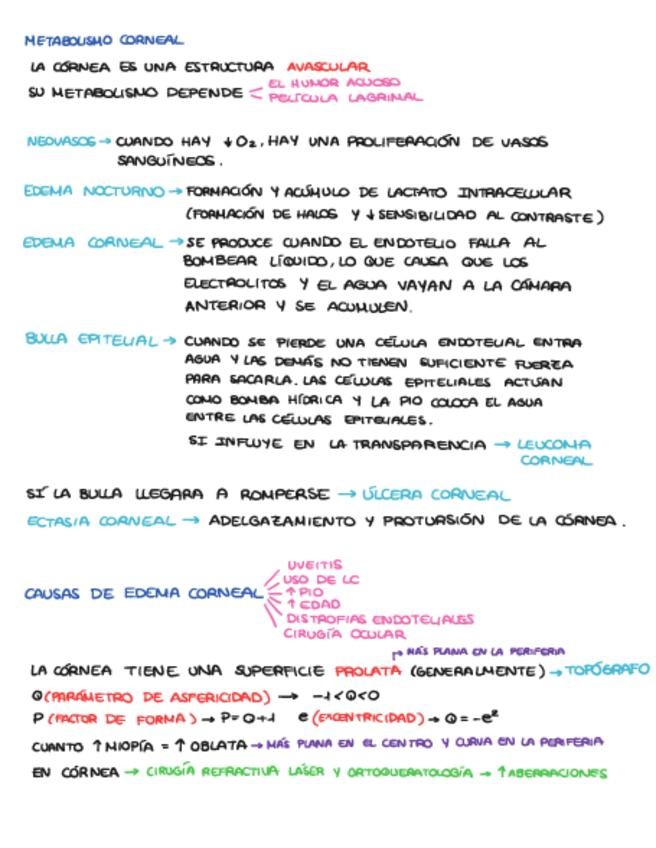 METABOLISMO CORNEAL
LA CÓRNEA ES UNA ESTRUCTURA AVASCULAR
SU METABOLISMO DEPENDE < EL HUMOR ACUOSO
PELÍCULA LAGRIMAL
NEOVASOS → CUANDO HAY ↓O₂, HAY UNA PROLIFERACIÓN DE VASOS
SANGUÍNEOS.
EDEMA NOCTURNO → FORMACIÓN Y ACÚMULO DE LACTATO INTRACELULAR
(FORMACIÓN DE HALOS Y ↓SENSIBILIDAD AL CONTRASTE)
EDEMA CORNEAL → SE PRODUCE CUANDO EL ENDOTELIO FALLA AL
BOMBEAR LÍQUIDO, LO QUE CAUSA QUE LOS
ELECTROLITOS Y EL AGUA VAYAN A LA CÁMARA
ANTERIOR Y SE ACUMULEN.
BULLA EPITELIAL → CUANDO SE PIERDE UNA CÉLULA ENDOTELIAL ENTRA
AGUA Y LAS DEMÁS NO TIENEN SUFICIENTE FUERZA
PARA SACARLA. LAS CÉLULAS EPITELIALES ACTÚAN
COMO BOMBA HÍDRICA Y LA PIO COLOCA EL AGUA
ENTRE LAS CÉLULAS EPITELIALES.
SI INFLUYE EN LA TRANSPARENCIA → LEUCOMA
CORNEAL
SÍ LA BULLA LLEGARA A ROMPERSE → ÚLCERA CORNEAL
ECTASIA CORNEAL → ADELGAZAMIENTO Y PROTURSIÓN DE LA CÓRNEA.
CAUSAS DE EDEMA CORNEAL
UVEITIS
USO DE LC
↑PIO
↑EDAD
DISTROFIAS ENDOTELIALES
CIRUGÍA OCULAR
→ MÁS PLANA EN LA PERIFERIA
LA CÓRNEA TIENE UNA SUPERFICIE PROLATA (GENERALMENTE) → TOPÓGRAFO
Q (PARÁMETRO DE ASFERICIDAD) → -1<Q<0
P (FACTOR DE FORMA) → P=Q+1 e (EXCENTRICIDAD) → Q=-e²
CUANTO ↑MIOPÍA = ↑OBLATA → MÁS PLANA EN EL CENTRO Y CURVA EN LA PERIFERIA
EN CÓRNEA → CIRUGÍA REFRACTIVA LÁSER Y ORTOQUERATOLOGÍA → ↑ABERRACIONES